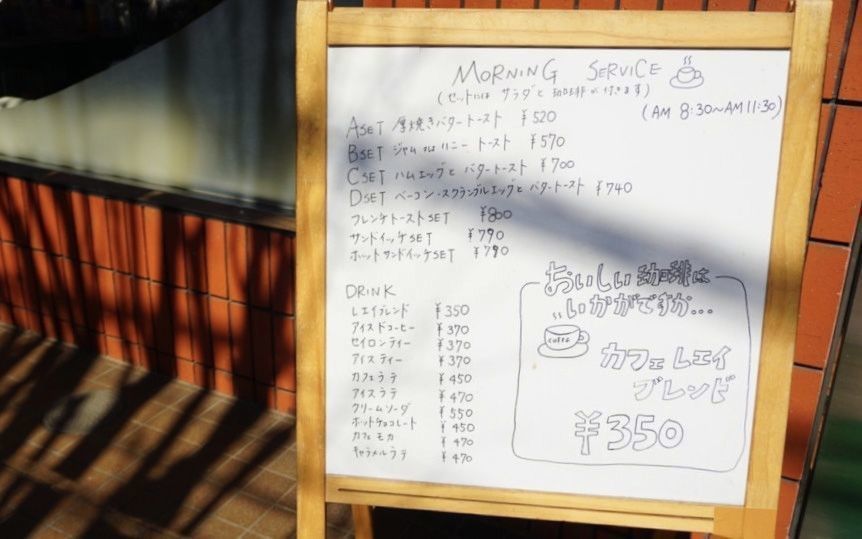 MORNING SERVICE
(セットには サラダと 珈琲が 付きます)
(AM 8:30~AM11:30)
ASET 厚焼きバタートースト ¥520
BSET ジャム or ハニー トースト ¥570
CSET ハムエッグと バタートースト ¥700
DSET ベーコン・スクランブルエッグと バタートースト ¥740
フレンチトーストSET ¥800
サンドイッチSET ¥790
ホットサンドイッチSET ¥790
DRINK
レエイブレンド ¥350
アイスドコーヒー ¥370
セイロンティー ¥370
アイスティー ¥370
カフェラテ ¥450
アイスラテ ¥470
クリームソーダ ¥550
ホットチョコレート ¥450
カフェモカ ¥470
キャラメルラテ ¥470
おいしい珈琲は
いかがですか...
COFFE
カフェ レエイ
ブレンド
¥350